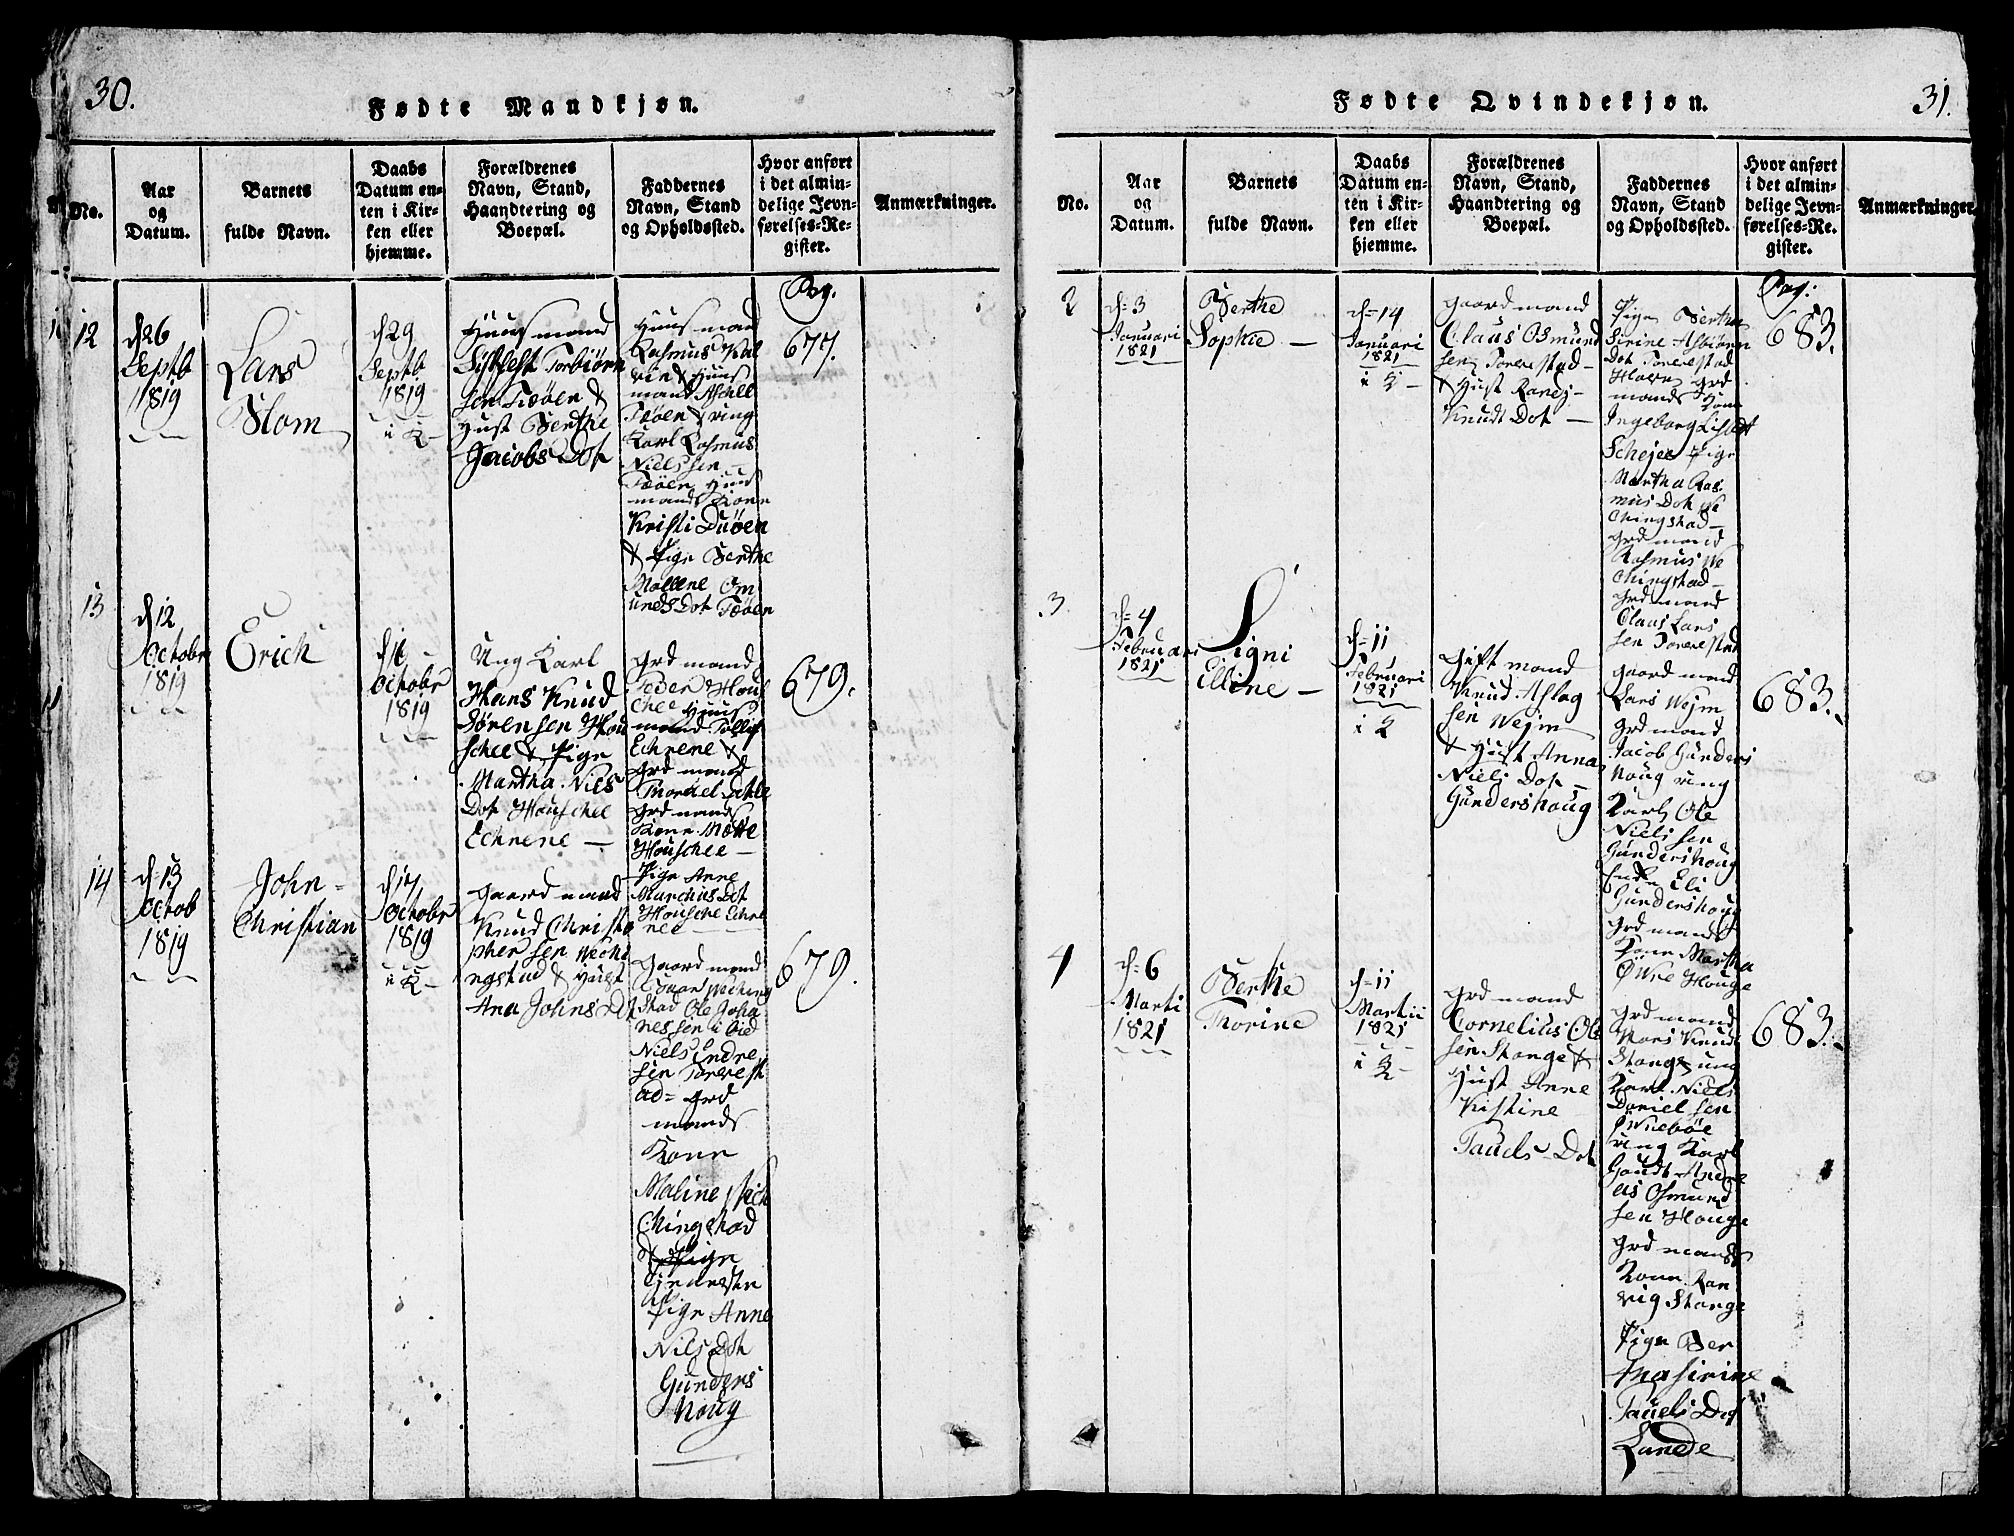 30.
Fødte Mandkjøn.
No.
Aar
og
Datum.
Barnets
fulde Navn.
Daabs
Datum en-
ten i Kir-
ken eller
hjemme.
Forældrenes
Navn, Stand,
Haandtering og
Boepæl.
Faddernes
Navn, Stand
og Opholdssted.
Hvor anført
i det almin-
delige Jevn-
førelses-Re-
gister.
Anmærkninger.
12
d 26
Septb
1819
Lars
Stom
d 29
Septb
1819
i K
Huusmand
Torbiørn
sen &
Hust Berthe
Jacobs Dot
Huusmand
Rasmus
mand
& ung
Karl Rasmus
Nielssen
Huus
mands Kone
Kristi
& Pige Berthe
Mallene Om
unds Dot
Pag.
677.
13
d 12
Octobr
1819
Erich
d 16
Octobr
1819
Ung Karl
Hans Knud
Sørensen Hou
schee & Pige
Martha Niels
Dot Houschee
Echrene
Grd mand
Peder Hous
chee Huus
mand
Echrene &
Grd mand
Grd mands
Kone Mette
Houschee
Pige Anne
Marchus Dot
Housche Echre
nee
679.
14
d=13
Octob
1819
John
Christian
d 17
Octobr
1819
i K
Gaard mand
Knud Christo
pher sen Wechi
ngstad & Hust
Ana Johns Dt
Gaard mand
Wiching
stad Ole Joha
nes sen
Niels Endre
sen Torrest
ad= Grd
mands
Kone
Maline Weh
Chingstad
&
Pige Anne
Niels Dot
Gunders
Houg
679.
31.
Fødte Qvindekjøn.
No.
Aar
og
Datum.
Barnets
fulde Navn.
Daabs
Datum en-
ten i Kir-
ken eller
hjemme.
Forældrenes
Navn, Stand,
Haandtering og
Boepæl.
Faddernes
Navn, Stand
og Opholdssted.
Hvor anført
i det almin-
delige Jevn-
førelses-Re-
gister.
Anmærkninger.
2
d=3
Januari
1821
Berthe
Sophie
d=14
Januari
1821
i K
Gaard mand
Claus Osmund
sen Torrestad
& Hust
Knudt Dot
Pige Bertha
Sirine Asbiørn
Dot Torrestad
Grd
mands Kone
Ingeborg
Pige
Martha Ras
mus Dot We
Chingstad
Grd mand
Rasmus We
Chingstad
Grd mand
Claus Lars
sen Torrestad
Pag:
683.
3
d=4
Februari
1821
Signi
Elline
d=11
Februari
1821
i K
Gift mand
Knud Aslag
sen Wejm
& Hust Anna
Niels Dot
Gundershoug
Gaard mand
Lars Wejm
Grd mand
Jacob Gunders
houg ung
Karl Ole
Niels sen
Gundershoug
Enke Eli
Gundershoug
Grd mands
Kone Martha
Øvre Houge
683.
4
d=6
Marti
1821
Berthe
Thorine
d=11
Martii
1821
i K
Grd mand
Cornelius Ole
sen Stange &
Hust Anne
Kistine
Pauels Dot
Grd mand
Knud
Stange ung
Karl Niels
Daniel sen
ung Karl
Goudt Andre
as Osmund
sen Houge
Grd mands
Kone Ran
vig Stange
Pige Ber
tha Sirine
Pauels Dot
Lunde
683.